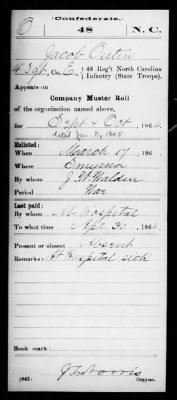 (Confederate.)
O 48 N. C.
Jacob
4 Sgt, Co. E, 48 Reg't North Carolina
Infantry (State Troops).
Appears on
Company Muster Roll
of the organization named above,
for Sept & Oct, 1864.
dated Jan 31, 1865
Enlisted:
When March 17, 186
Where
By whom J W Walden
Period War
Last paid:
By whom At Hospital
To what time Apr 30, 1864.
Present or absent Absent
Remarks: At Hospital sick
Book mark:
(642) J L Norris
Copyist.